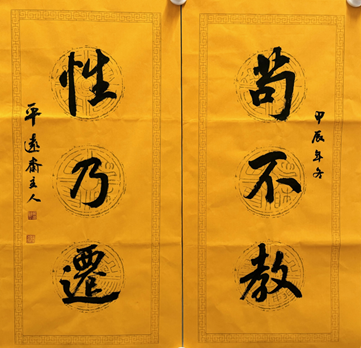 甲辰年冬
苟不教
性乃遷
平遠齋主人